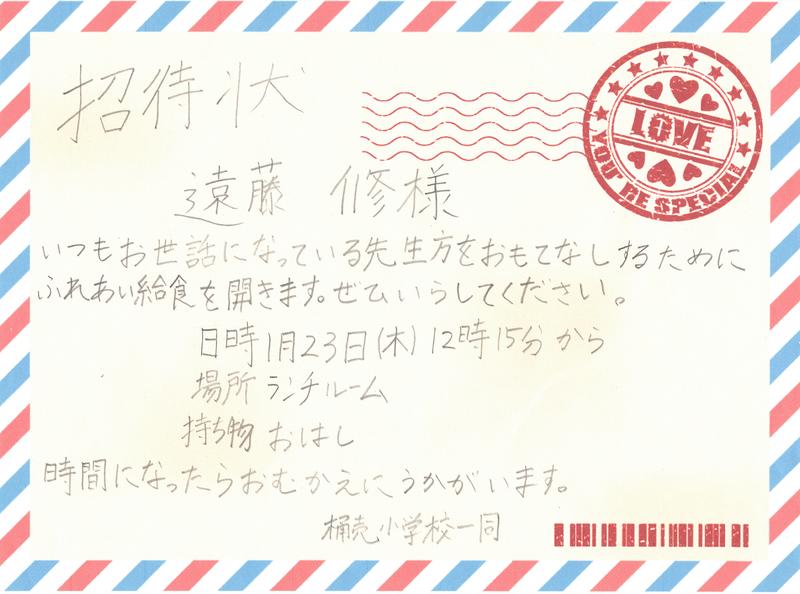 招待状
LOVE
YOU'RE SPECIAL
遠藤 修様
いつもお世話になっている先生方をおもてなしするために
ふれあい給食を開きます。ぜひいらしてください。
日時1月23日(木)12時15分から
場所 ランチルーム
持ち物 おはし
時間になったらおむかえにうかがいます。
桶売小学校一同